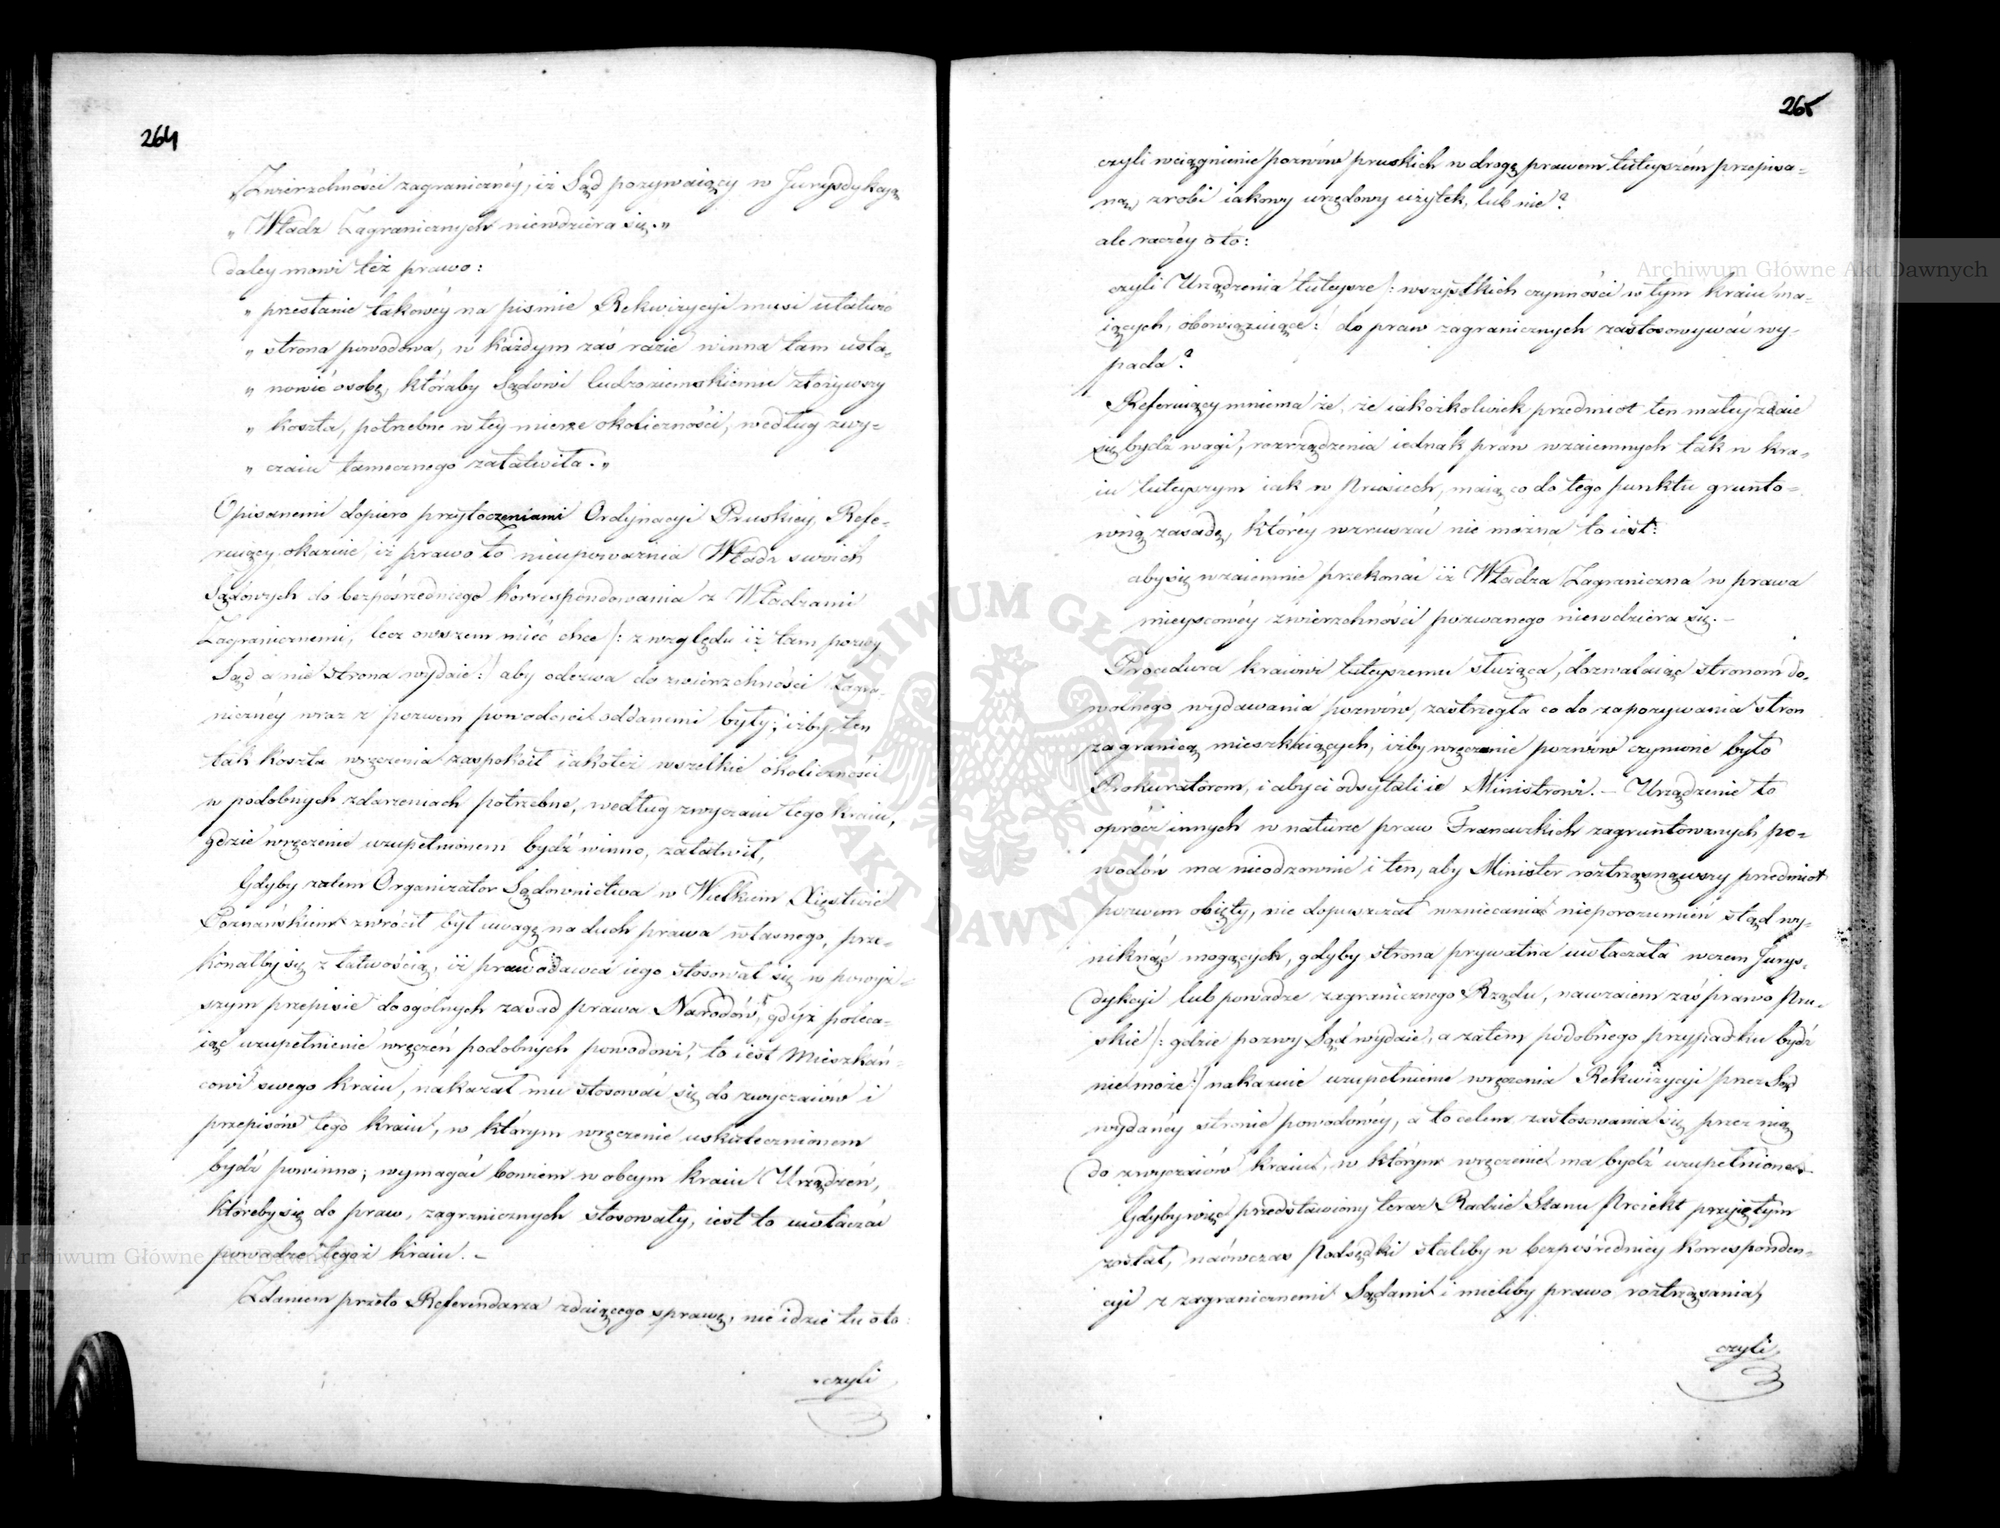 264
„Zwierzchności zagranicznéy, iż Sąd pozywaiący w Jurysdykcyą
„Władz Zagranicznych niewdziera się.„
daley mowi też prawo:
„przesłanie takowéy na piśmie Rekwizycyi musi ułatwić
„strona powodowa, w każdym zaś razie winna tam usta-
„nowić osobę, któraby Sądowi cudzoziemskiemu złożywszy
„koszta, potrzebne w tey mierze okoliczności, według zwy-
„czaiu tamecznego załatwiła.„
Opisanemi dopiero przytoczeniami Ordynacyi Pruskiey, Refe-
ruiący okazuie, iż prawo to nieupoważnia Władz swoich
Sądowych do bezpośredniego korrespondowania z Władzami
Zagranicznemi, lecz owszem mieć chce /: z względu iż tam pozwy
Sąd a nie strona wydaie :/ aby odezwa do zwierzchności Zagra-
niczney wraz z pozwem powodowi oddanemi były; iżby ten
tak koszta wręczenia zaspokoił iakoteż wszelkie okoliczności
w podobnych zdarzeniach potrzebne, według zwyczaiu tego kraiu,
gdzie wręczenie uzupełnionem bydź winno, załatwił,
Gdyby zatem Organizator Sądownictwa w Wielkiem Xięstwie
Poznańskiem zwrócił był uwagę na duch prawa własnego, prze-
konałby się z łatwością, iż prawodawca iego stosował się w powyż-
szym przepisie do ogólnych zasad prawa Narodów, gdyż poleca-
iąc uzupełnienie wręczeń podobnych powodowi, to iest Mieszkań-
cowi swego kraiu, nakazał mu stosować się do zwyczaiów i
przepisów tego kraiu, w którym wręczenie uskutecznionem
bydź powinno; wymagać bowiem w obcym kraiu Urządzeń,
któreby się do praw zagranicznych stosowały, iest to uwłaczać
powadze tegoż kraiu. –
Zdaniem przeto Referendarza zdaiącego sprawę, nie idzie tu o to:
czyli
265
czyli wciągnienie pozwów pruskich w drogę prawem tuteyszém przepisa-
ną, zrobi iakowy urzędowy użytek, lub nie?
ale raczéy o to:
czyli Urządzenia tuteysze /: wszystkich czynności w tym kraiu ma-
iących, obowiązuiące :/ do praw zagranicznych zastosowywać wy-
pada?
Referuiący mniema że, że iakożkolwiek przedmiot ten małey zdaie
się bydź wagi, rozrządzenia iednak praw wzaiemnych tak w kra-
iu tuteyszym iak w Prusiech, maią co do tego punktu grunto-
wną zasadę, którey wzruszać nie można to iest:
aby się wzaiemnie przekonać iż Władza Zagraniczna w prawa
mieyscowéy zwierzchności pozwanego niewdziera się. –
Procedura kraiowi tuteyszemu służąca, dozwalaiąc stronom do-
wolnego wydawania pozwów, zastrzegła co do zapozywania stron
zagranicą mieszkaiących, iżby wręczenie pozwów czynione było
Prokuratorom, i aby ci odsyłali ie Ministrowi. – Urządzenie to
oprócz innych w naturze praw Francuzkich zagruntowanych po-
wodów ma nieodzownie i ten, aby Minister roztrząsnąwszy przedmiot
pozwem obięty, nie dopuszczał wzniecania nieporozumień stąd wy-
niknąć mogących, gdyby strona prywatna uwłaczała wczem Jurys-
dykcyi lub powadze zagranicznego Rządu, nawzaiem zaś prawo Pru-
skie /: gdzie pozwy Sąd wydaie, a zatem podobnego przypadku bydź
nie może :/ nakazuie uzupełnienie wręczenia Rekwizycyi przez Sąd
wydanéy stronie powodowéy, a to celem zastosowania się przez nią
do zwyczaiów kraiu, w którym wręczenie ma bydź uzupełnione. –
Gdyby więc przedstawiony teraz Radzie Stanu Proiekt przyiętym
został, naówczas Podsędki staliby w bezpośredniey korresponden-
cyi z zagranicznemi Sądami i mieliby prawo roztrząsania,
czyli